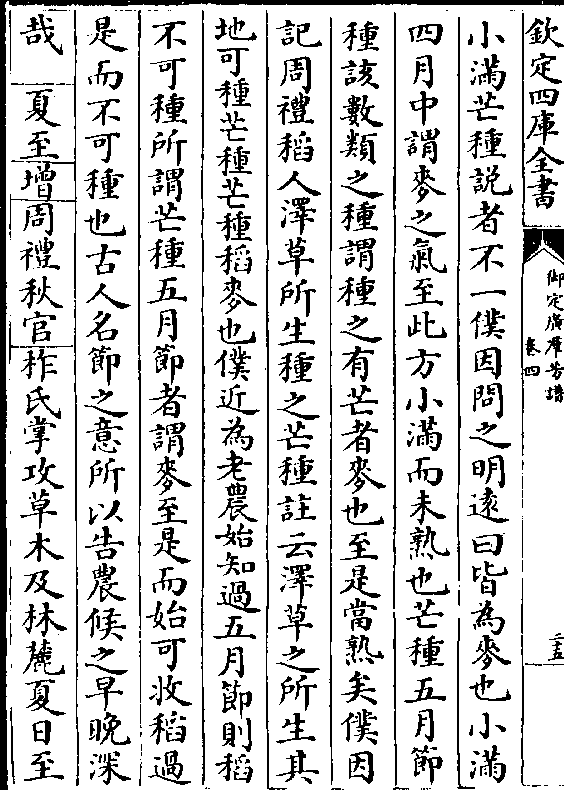 欽定四庫全書
御定廣羣芳譜
卷四
二五
小滿芒種説者不一僕因問之明遠曰皆為麥也小滿
四月中謂麥之氣至此方小滿而未熟也芒種五月節
種該數類之種謂種之有芒者麥也至是當熟矣僕因
記周禮稻人澤草所生種之芒種註云澤草之所生其
地可種芒種芒種稻麥也僕近為老農始知過五月節則稻
不可種所謂芒種五月節者謂麥至是而始可收稻過
是而不可種也古人名節之意所以告農候之早晚深
哉　夏至增周禮秋官柞氏掌攻草木及林麓夏日至